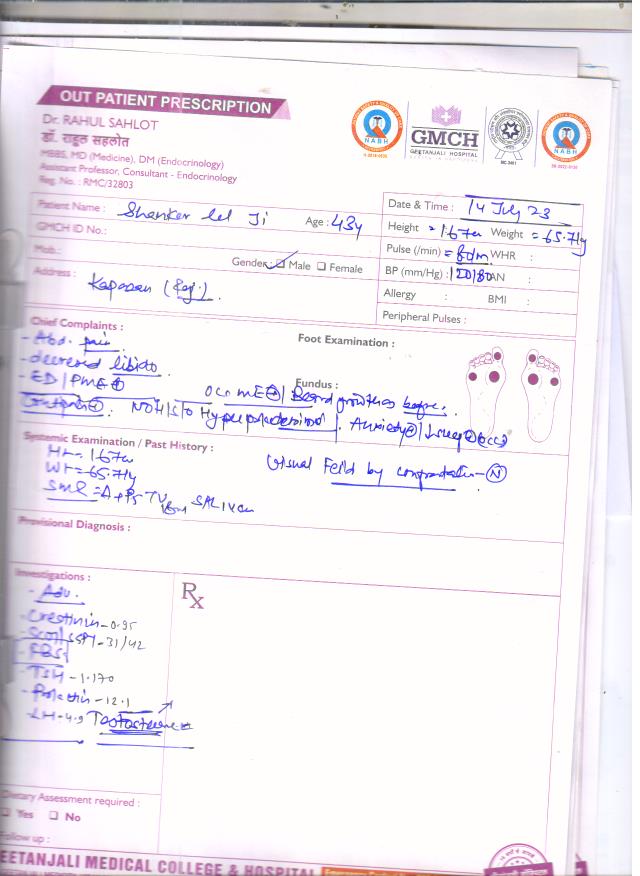 OUT PATIENT PRESCRIPTION
Dr. RAHUL SAHLOT
डॉ. राहुल सहलोत
MBBS, MD (Medicine), DM (Endocrinology)
Assistant Professor, Consultant - Endocrinology
Reg. No. : RMC/32803
NABH
GMCH
GEETANJALI HOSPITAL
NABH
Patient Name : Shanker lal Ji Age : 43y
GMCH ID No.:
Mob.:
Gender: Male Female
Address :
Date & Time : 14 July 23
Height = 167cm Weight = 65.7kg
Pulse (/min) = WHR :
BP (mm/Hg) : 120/80 AN :
Allergy : BMI :
Peripheral Pulses :
Chief Complaints :
- Abd. pain
- decreased libido
- ED/PME
Foot Examination :
Fundus :
Beard growth as before.
NO H/S/O
Anxiety
Systemic Examination / Past History :
Ht = 167cm
Wt = 65.7kg
SMR =
Visual Feild by confrontation - N
Provisional Diagnosis :
Investigations :
- Adv.
- Creatinin - 0.95
- SGOT/SGPT - 31/42
- FBS
- TSH - 1.170
- Prolactin - 12.1
- LH - 4.9 Testosterone
Rx
Dietary Assessment required :
Yes No
Follow up :
GEETANJALI MEDICAL COLLEGE & HOSPITAL